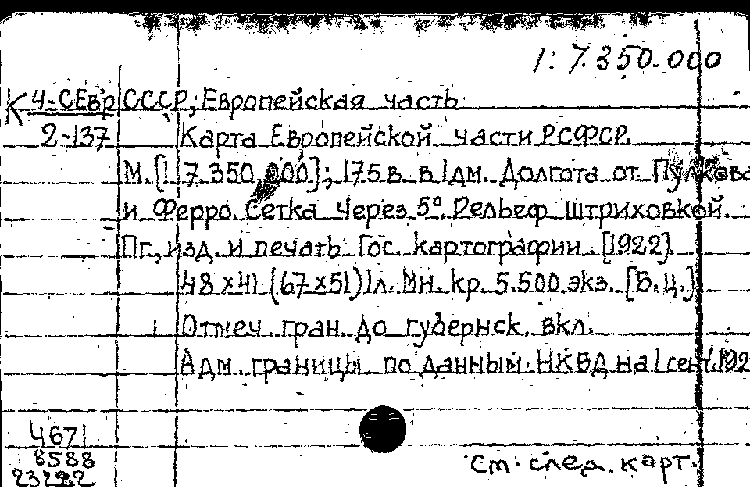 1:7.350.000
К 4-СЕвр СССР, Европейская часть
2-137 Карта Европейской части РСФСР.
М. [1:7.350.000]; 175 в. в 1 дм. Долгота от Пулкова
и Ферро. Сетка через 5°. Рельеф штриховкой.
Пг., изд. и печать Гос. картографии. [1922]
48x41 (67x51) 1 л. Мн. кр. 5.500 экз. [Б.ц.]
Отмеч. гран. до губернск. вкл.
Адм. границы по данным НКВД на 1 сент. 192
4671
8588
23292
См. след. карт.